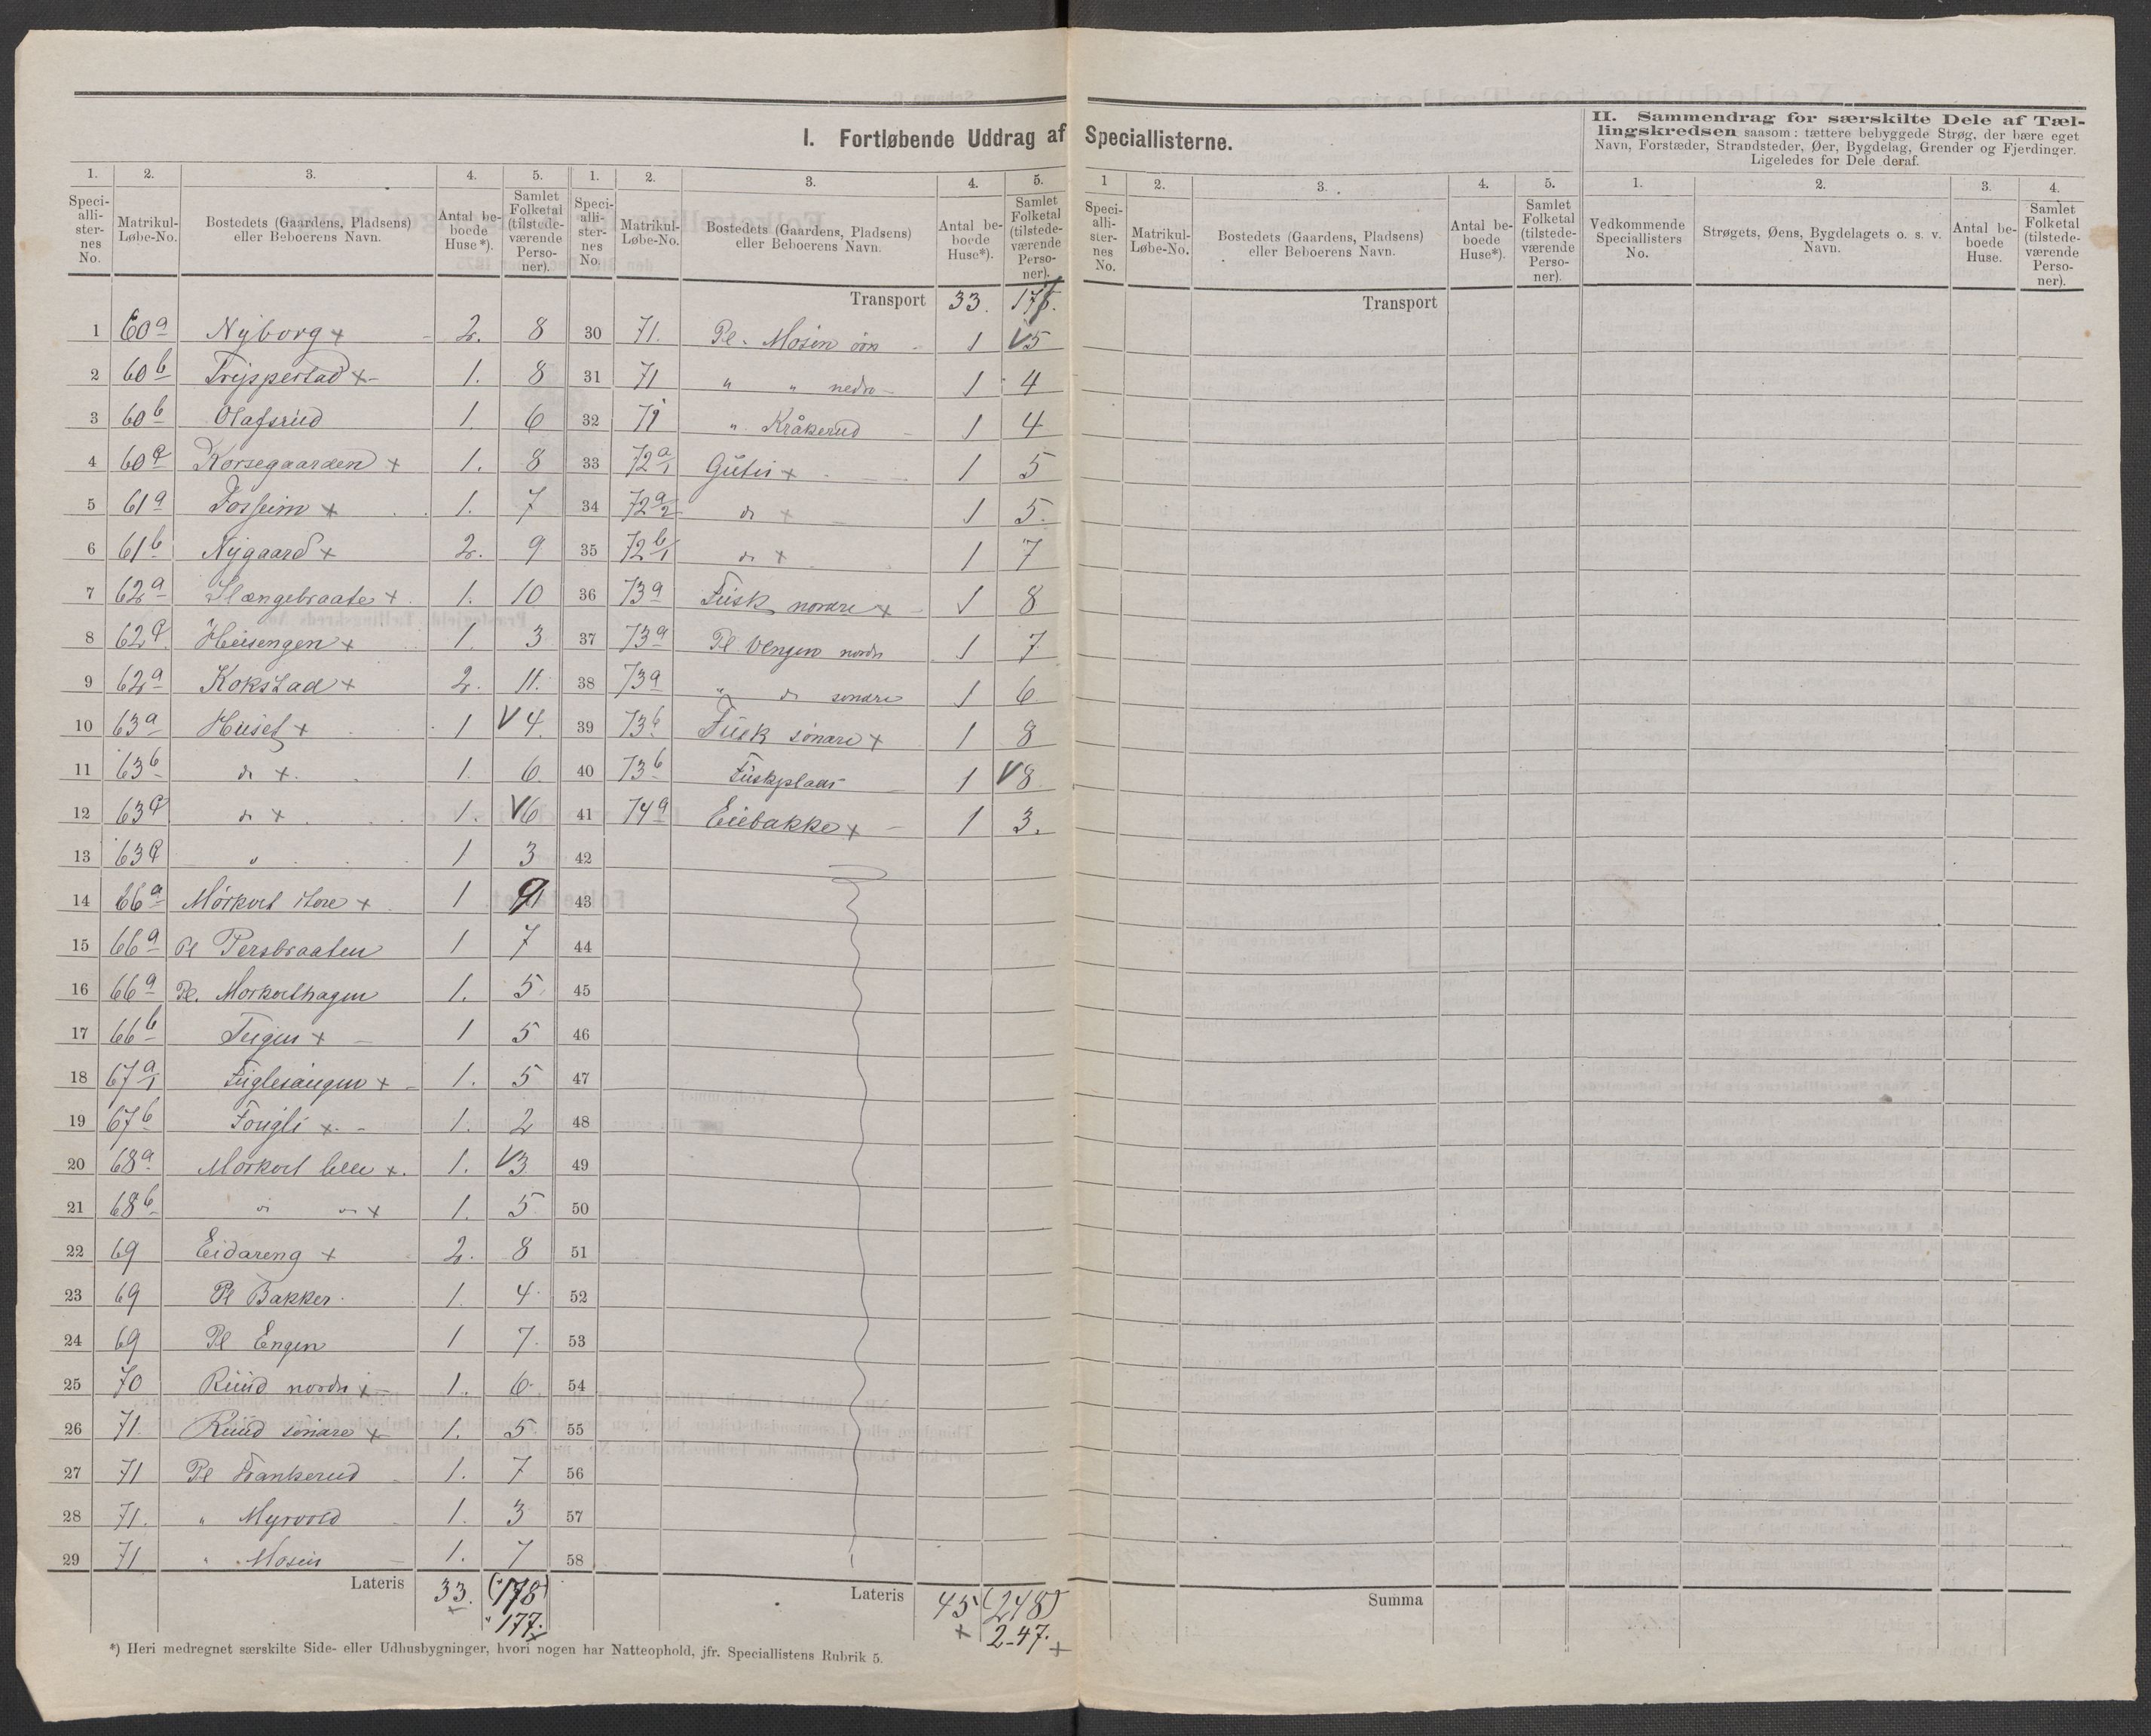 I. Fortløbende Uddrag af Speciallisterne.
II. Sammendrag for særskilte Dele af Tæl-
lingskredsen saasom: tættere bebyggede Strøg, der bære eget
Navn, Forstæder, Strandsteder, Øer, Bygdelag, Grender og Fjerdinger.
Ligeledes for Dele deraf.
1. 2. 3. 4. 5. 1. 2. 3. 4. 5. 1 2. 3. 4. 5. 1. 2. 3. 4.
Speci-alli-ster-nes No. Matrikul-Løbe-No. Bostedets (Gaardens, Pladsens) eller Beboerens Navn. Antal be-boede Huse*). Samlet Folketal (tilstede-værende Perso-ner).
Speci-alli-ster-nes No. Matrikul-Løbe-No. Bostedets (Gaardens, Pladsens) eller Beboerens Navn. Antal be-boede Huse*). Samlet Folketal (tilstede-værende Perso-ner).
Speci-alli-ster-nes No. Matrikul-Løbe-No. Bostedets (Gaardens, Pladsens) eller Beboerens Navn. Antal be-boede Huse*). Samlet Folketal (tilstede-værende Perso-ner).
Vedkommende Speciallisters No. Strøgets, Øens, Bygdelagets o. s. v. Navn. Antal be-boede Huse. Samlet Folketal (tilstede-værende Perso-ner).
1 60a Nyborg + 2. 8
2 60b Trejsperstad + 1. 8
3 60b Olafsrud 1. 6
4 60 Korsegaarden + 1. 8
5 61a Fosheim + 1. 7
6 61b Nygaard + 2. 9
7 62a Slængebraate + 1. 10
8 62 Heisengen + 1. 3
9 62a Kokstad + 2. 11.
10 63a Huset + 1 V 4.
11 63b do + 1. 6
12 63 do + 1. V6
13 63 " 1 3
14 66a Mórkvet store + 1 9
15 66a Pl Persbraaten 1 7
16 66a Pl. Morkvethagen 1. 5
17 66b Teigen + 1 5
18 67a/1 Fuglesangen + 1. 5
19 67b Fougli + 1. 2
20 68a Morkvet lille +. 1. V3
21 68b do do + 1. 5
22 69 Eidareng + 2. 8
23 69 Pl Bakker 1. 4
24 69 Pl Engen 1 7.
25 70 Ruud nordre + 1. 6
26 71. Ruud sóndre + 1. 5
27 71 Pl Frankerud 1. 7
28 71. " Myrvold 1. 3
29 71 " Mosen 1. 7
Lateris 33. (178)
177.
Transport 33. 177.
30 71. Pl. Mosen óvre 1 V5
31 71 " " nedre 1 4
32 71 " Kråkerud 1 4
33 72a/1 Guteis + 1 5
34 72a/2 do + 1 5.
35 72b/1 do + 1 7
36 73a Fusk nordre + 1 8
37 73a Pl Vengen nordre 1 7
38 73a " do sondre 1 6
39 73b Fusk sóndre + 1 8
40 73b Fuskplads 1 V8
41 74a Eiebakke + 1 3.
42
43
44
45
46
47
48
49
50
51
52
53
54
55
56
57
58
Lateris 45 (248)
+ 247. +
Transport
Summa
*) Heri medregnet særskilte Side- eller Udhusbygninger, hvori nogen har Natteophold, jfr. Speciallistens Rubrik 5.